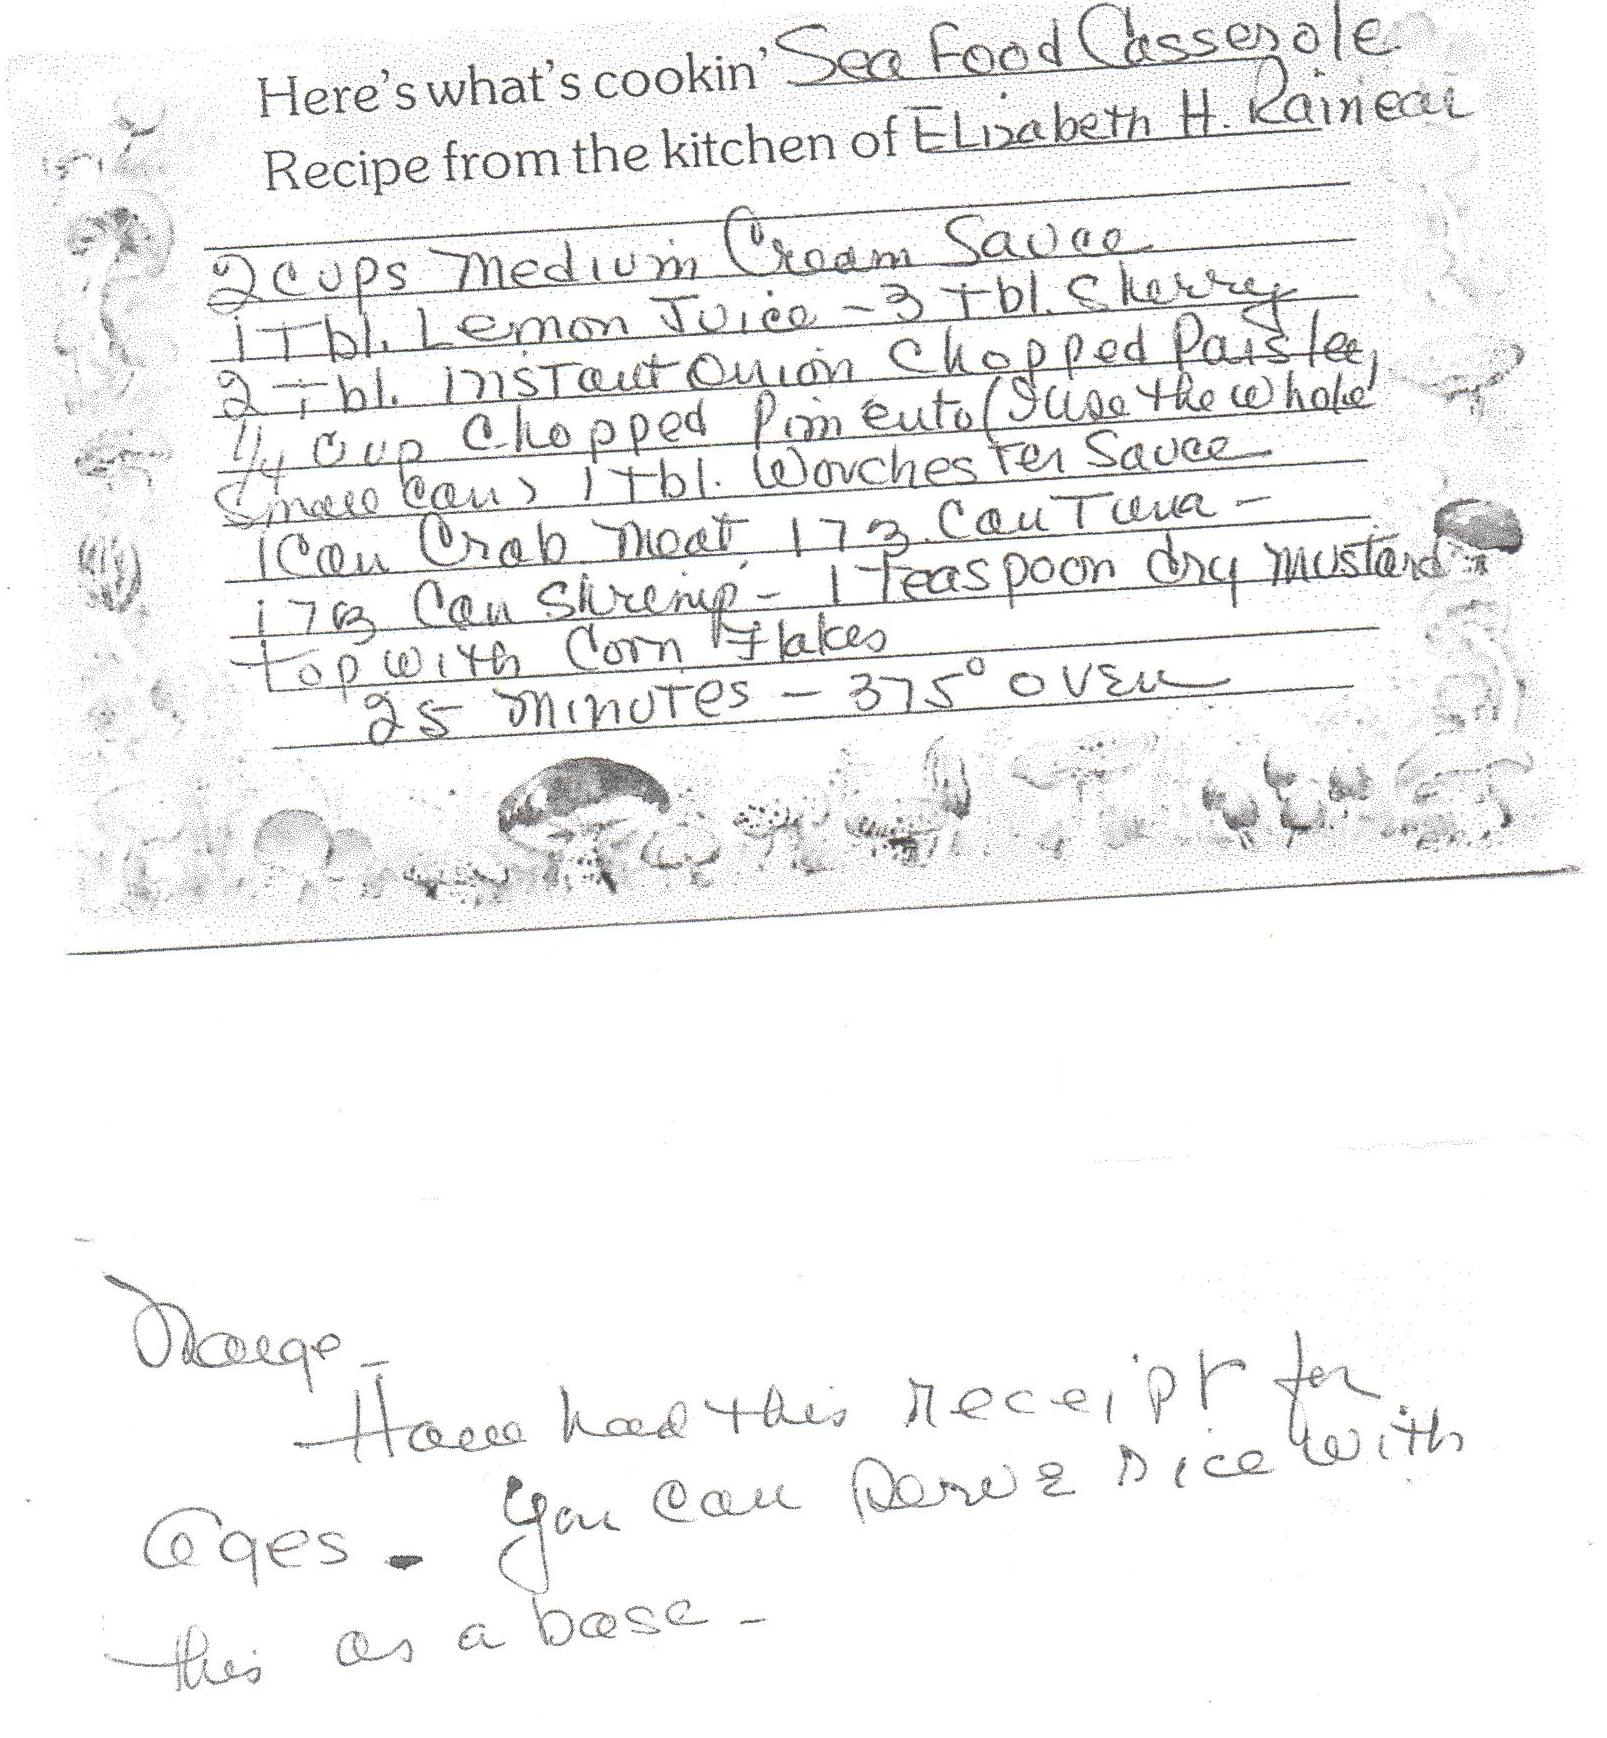 Here's what's cookin' Sea Food Casserole
Recipe from the kitchen of Elizabeth H.
2 cups Medium Cream Sauce
1 Tbl. Lemon Juice - 3 Tbl. Sherry
2 Tbl. Instant Onion Chopped Parslee,
1/4 Cup Chopped Pimento (I use the whole
Small Can) 1 Tbl. Worchester Sauce
1 Can Crab Meat, 1 7 oz. Can Tuna -
1 7 oz Can Shrimp - 1 Teaspoon dry mustard
top with Corn Flakes
25 minutes - 375° oven
Marge -
Have had this receipt for
ages - You can serve rice with
this as a base -